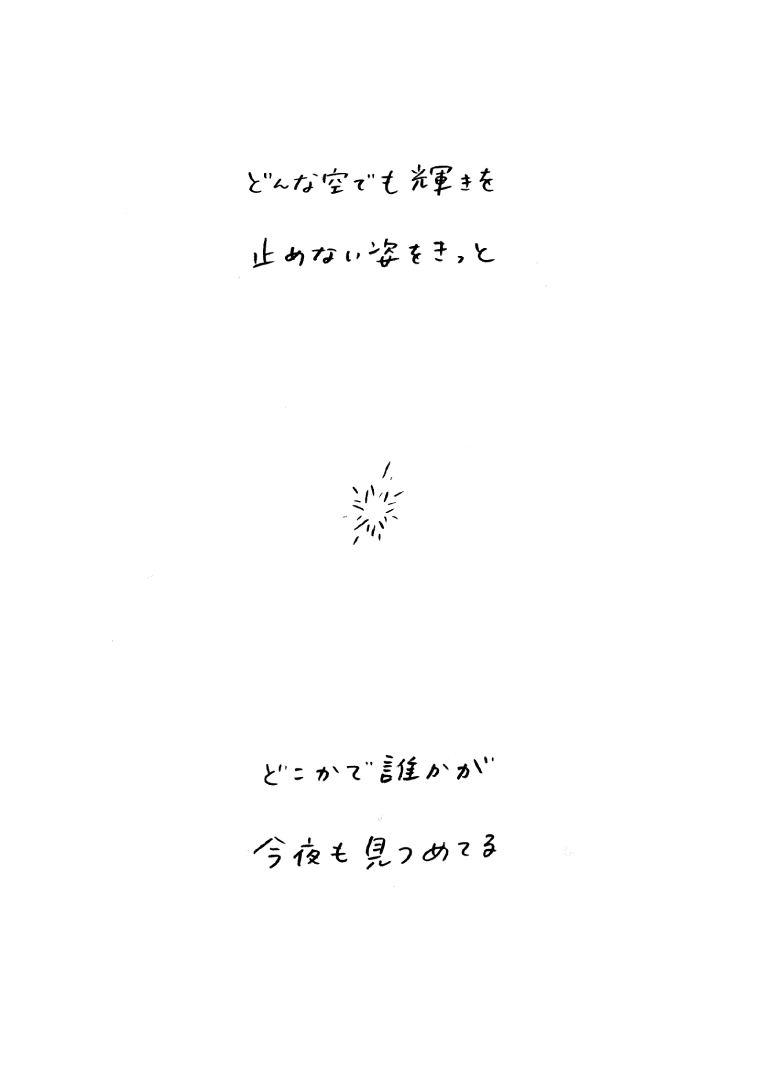 どんな空でも輝きを
止めない姿をきっと
どこかで誰かが
今夜も見つめてる